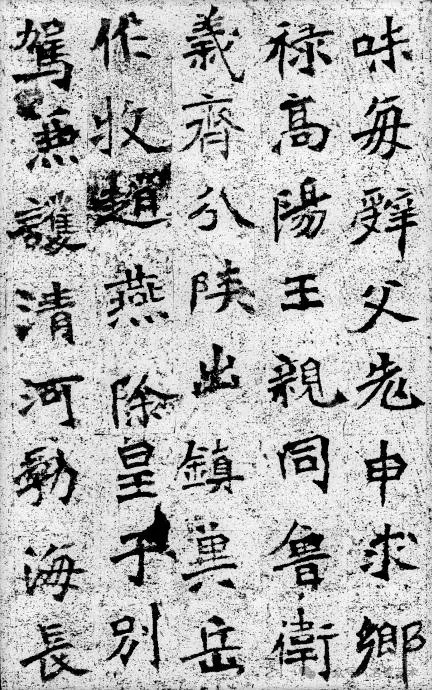 味每辭父老申求鄉
祿高陽王親同魯衛
義齊分陝出鎮冀岳
作牧趙燕除皇子別
駕兼護清河勃海長